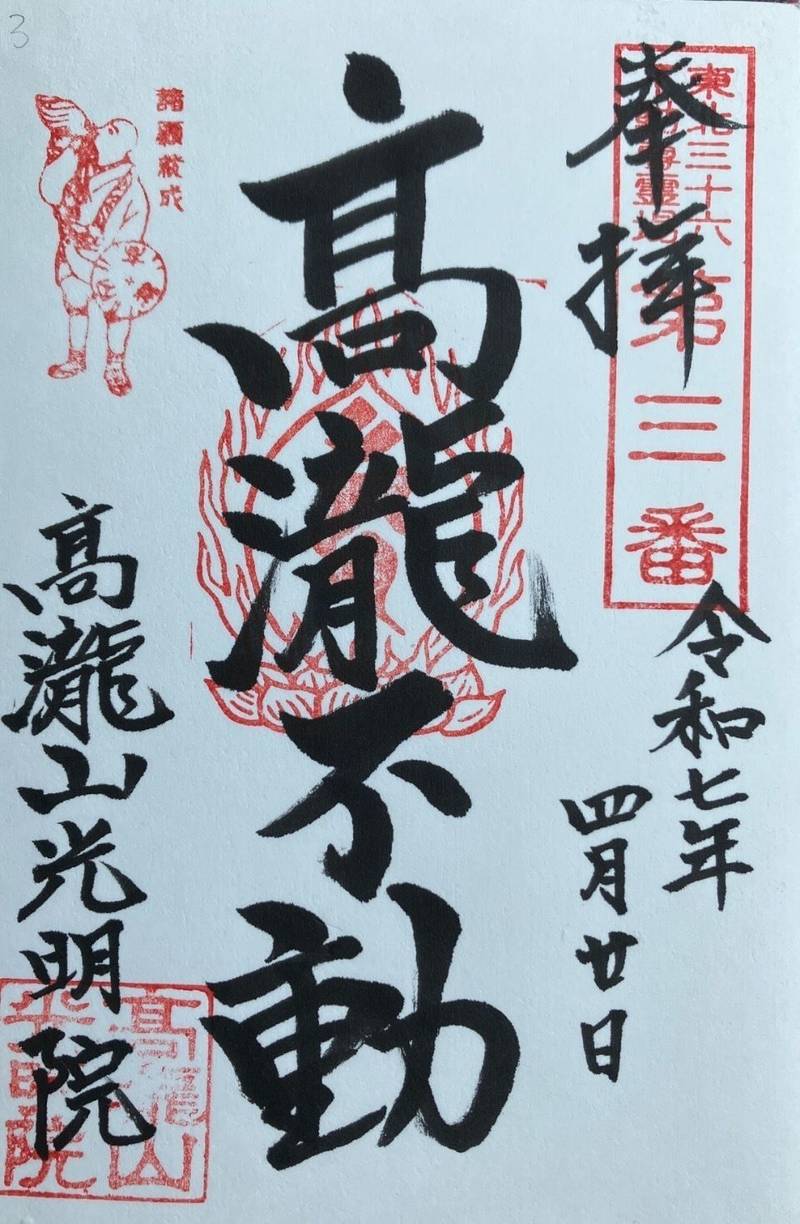 3
奉拝
東北三十六
不動尊霊場
第三番
令和七年
四月廿日
髙瀧不動
諸願成
髙瀧山光明院
髙瀧山
光明院